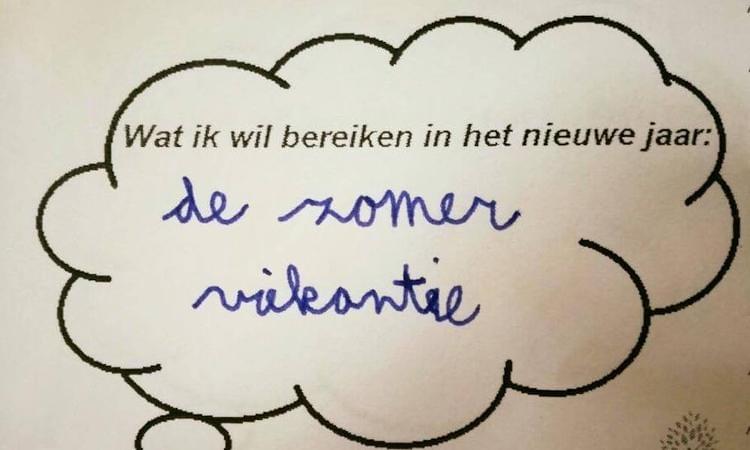 Wat ik wil bereiken in het nieuwe jaar:
de zomer
vakantie